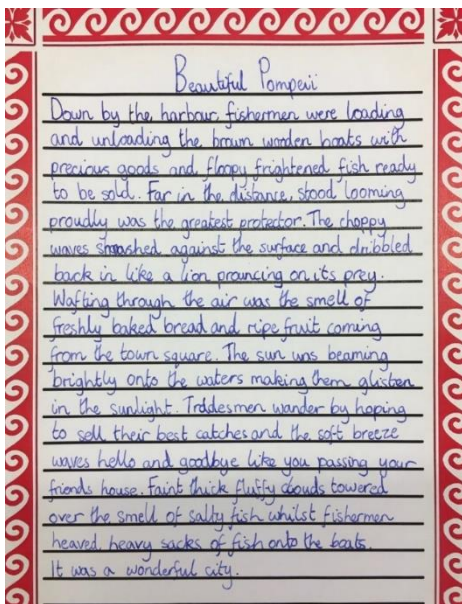 Beautiful Pompeii
Down by the harbour, fishermen were loading
and unloading the brown wooden boats with
precious goods and floopy frightened fish ready
to be sold. Far in the distance, stood looming
proudly was the greatest protector. The choppy
waves smashed against the surface and dribbled
back in like a lion prouncing on its prey.
Wafting through the air was the smell of
freshly baked bread and ripe fruit coming
from the town square. The sun was beaming
brightly onto the waters making them glisten
in the sunlight. Traddesmen wander by hoping
to sell their best catches and the soft breeze
waves hello and goodbye like you passing your
friends house. Faint thick fluffy clouds towered
over the smell of salty fish whilst fishermen
heaved, heavy sacks of fish onto the boats.
It was a wonderful city.